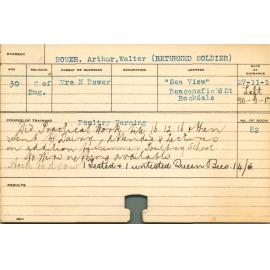 STUDENT
BOWER. Arthur, Walter (RETURNED SOLDIER)
AGE RELIGION PARENT OR GUARDIAN OCCUPATION ADDRESS DATE OF ENTRANCE
30 C of Eng. Mrs N Bower "Sea View" Beaconsfield St Rockdale 27-11-1
Left
COURSE OF TRAINING Poultry Farming NO. OF ROOM
82
Did Practical Work till 16-12-16 & then
went to Dairy, attended Lectures
in addition to Summer Poultry School
available
1 tested & 1 untested Queen Bees 14/6
RESULTS